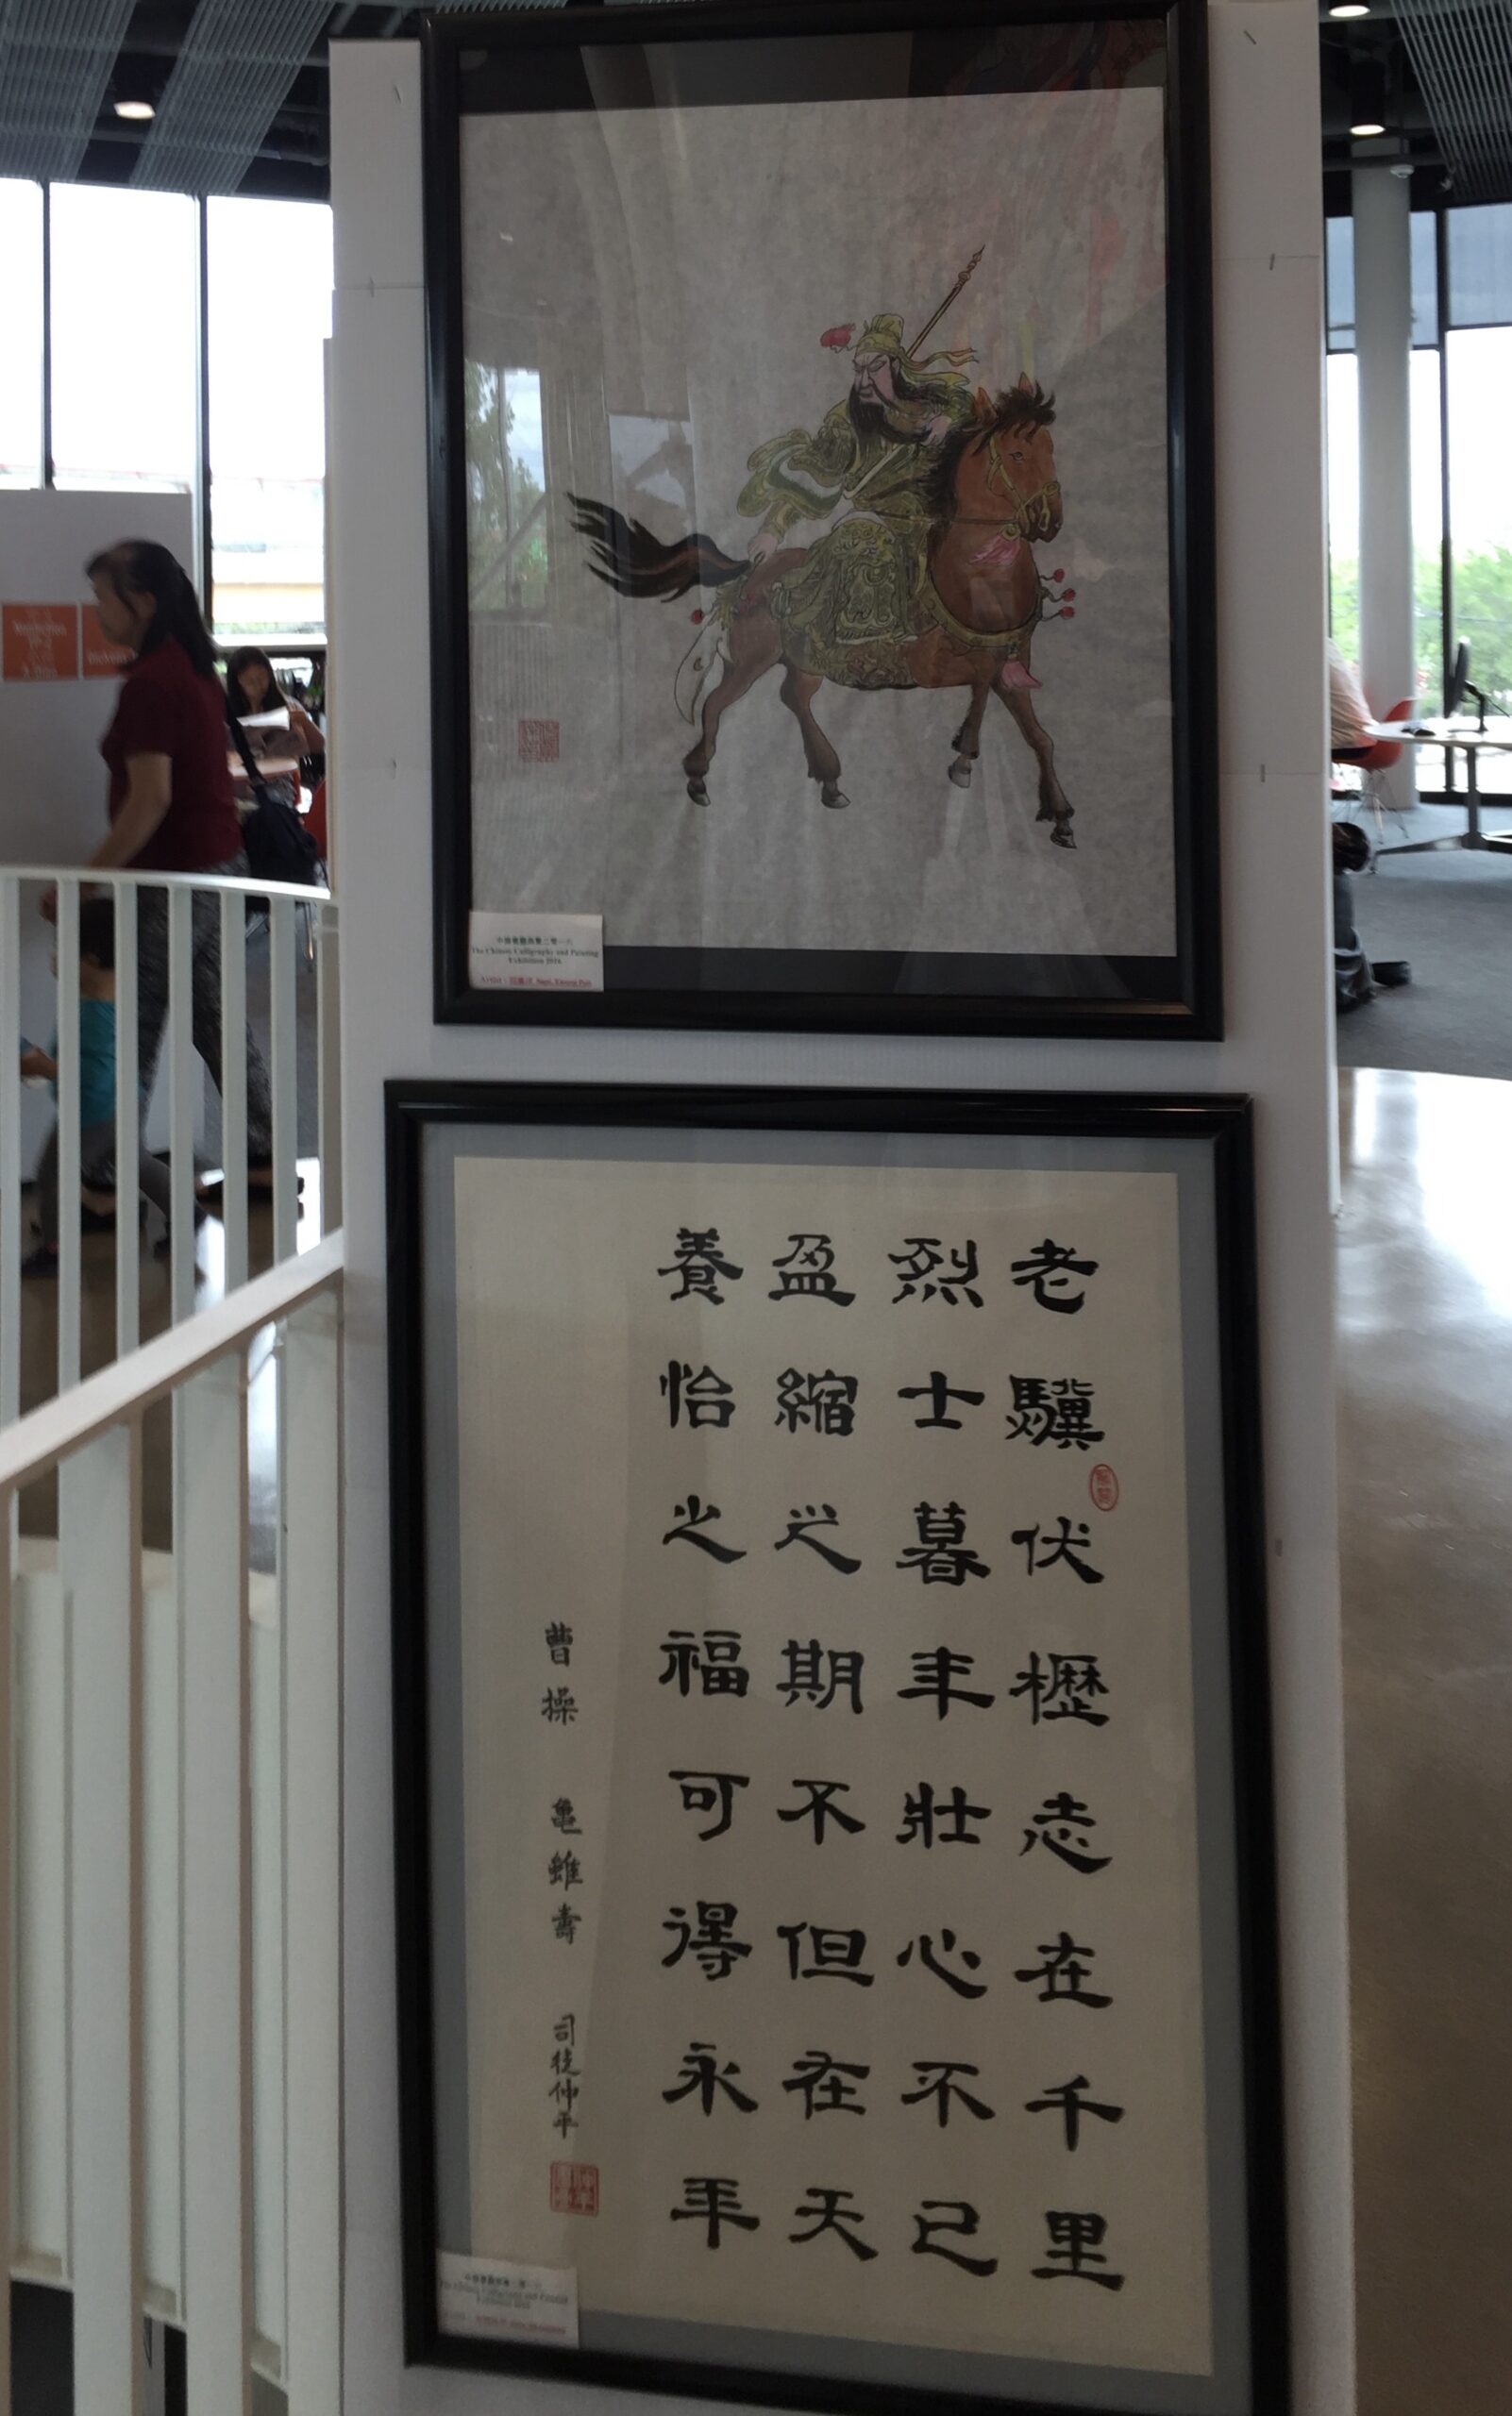 中國書畫展覽二零一六
The Chinese Calligraphy and Painting
Exhibition 2016
老驥伏櫪志在千里
烈士暮年壯心不已
盈縮之期不但在天
養怡之福可得永年
曹操 龜雖壽 司徒仲平